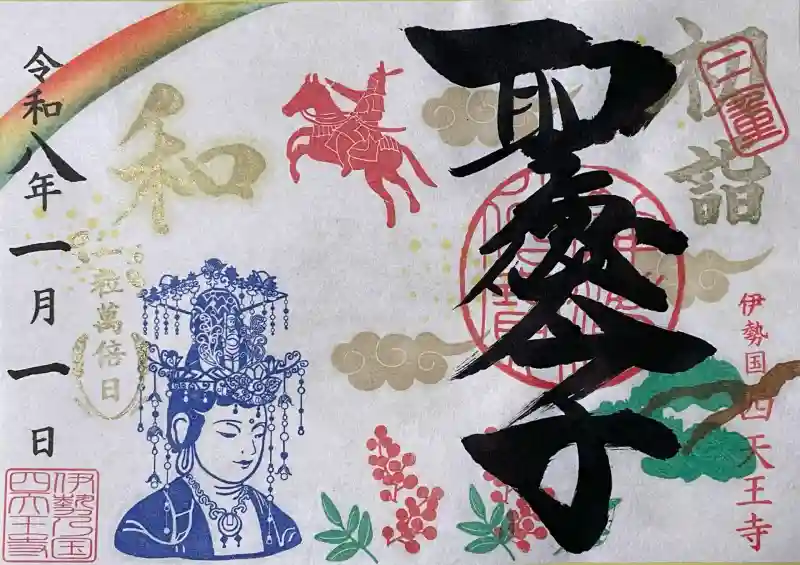 初詣
伊勢国 四天王寺
聖徳太子
和
一粒萬倍日
令和八年一月一日
伊勢乃国
四天王寺